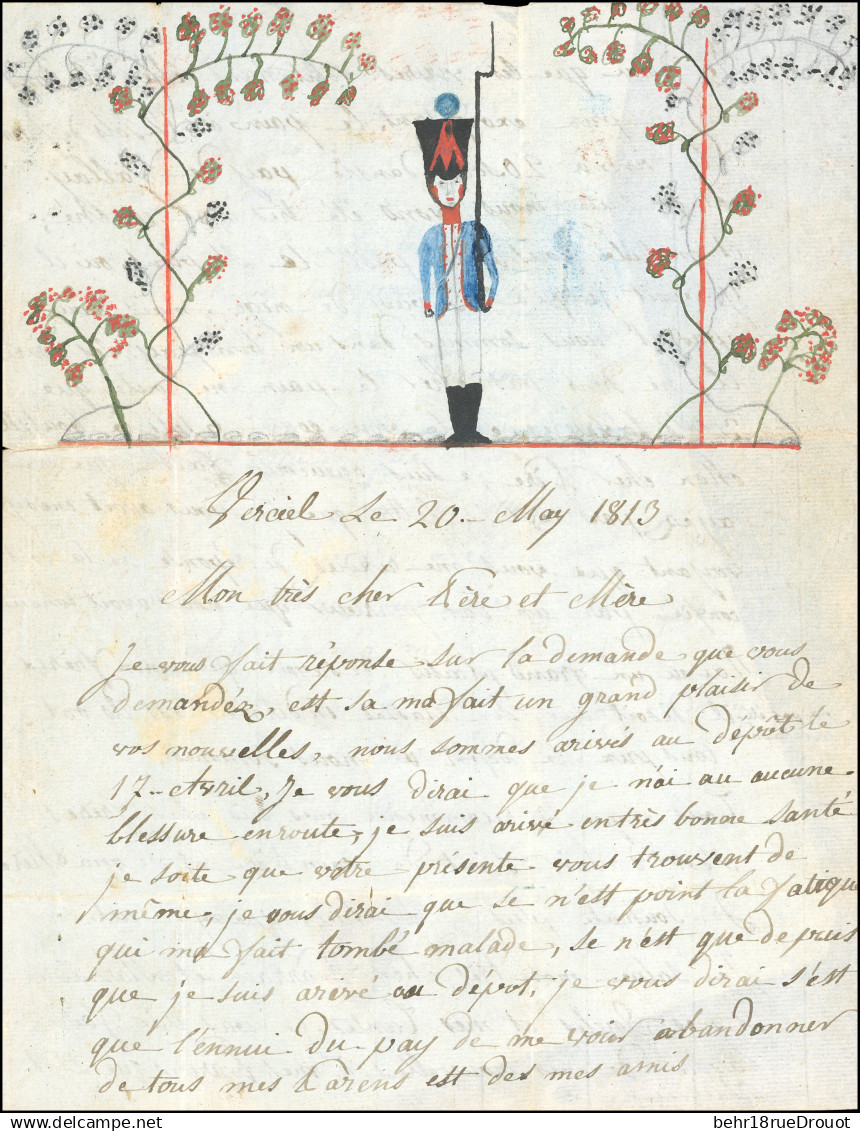 Verciel Le 20 - May 1813
Mon très cher Père et Mère
Je vous fait réponse sur la demande que vous
demandéz, est sa ma fait un grand plaisir de
vos nouvelles, nous sommes arivés au depôt le
17 - Avril, Je vous dirai que je n'ai au aucune
blessure enroute, je suis arivé entrès bonne santé
je soite que votre présente vous trouvent de
même, je vous dirai que se n'est point la fatique
qui ma fait tombé malade, se n'est que depuis
que je suis arivé au dépot, je vous dirai s'est
que l'ennui du pay de me voir abandonner
de tous mes Parens est des mes amis
behr18rueDrouot